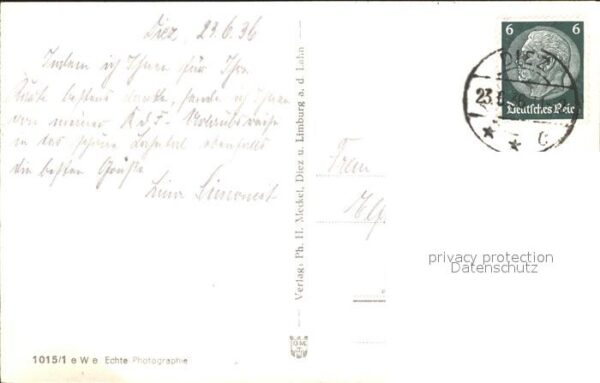 Diez, 23.6.36
Indem ich Ihnen für Ihre
Karte bestens danke, sende ich Ihnen
von meiner K.d.F.-Urlaubsreise
in das schöne Lahntal ebenfalls
die besten Grüße
Lina Simoneit
Verlag: Ph. H. Meckel, Diez u. Limburg a. d. Lahn
Frau
6 6
Deutsches Reich
DIEZ
23.6.
* * C
privacy protection
Datenschutz
1015/1 e W e Echte Photographie